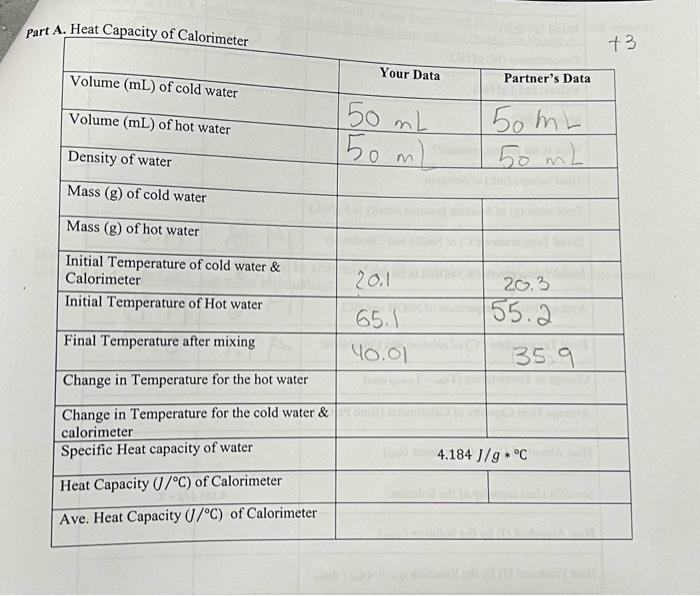 Part A. Heat Capacity of Calorimeter
+3
Your Data Partner's Data
Volume (mL) of cold water 50 mL 50 mL
Volume (mL) of hot water 50 mL 50 mL
Density of water
Mass (g) of cold water
Mass (g) of hot water
Initial Temperature of cold water &
Calorimeter 20.1 20.3
Initial Temperature of Hot water 65.1 55.2
Final Temperature after mixing 40.01 35.9
Change in Temperature for the hot water
Change in Temperature for the cold water &
calorimeter
Specific Heat capacity of water 4.184 J/g * °C
Heat Capacity (J/°C) of Calorimeter
Ave. Heat Capacity (J/°C) of Calorimeter